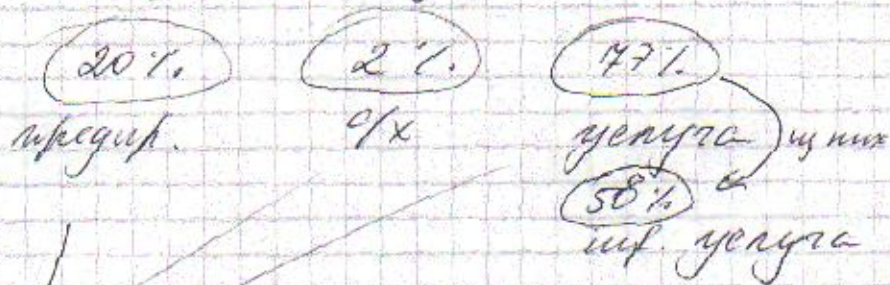 20% 2% 77%
предпр. с/х услуга из них
58%
инф. услуга